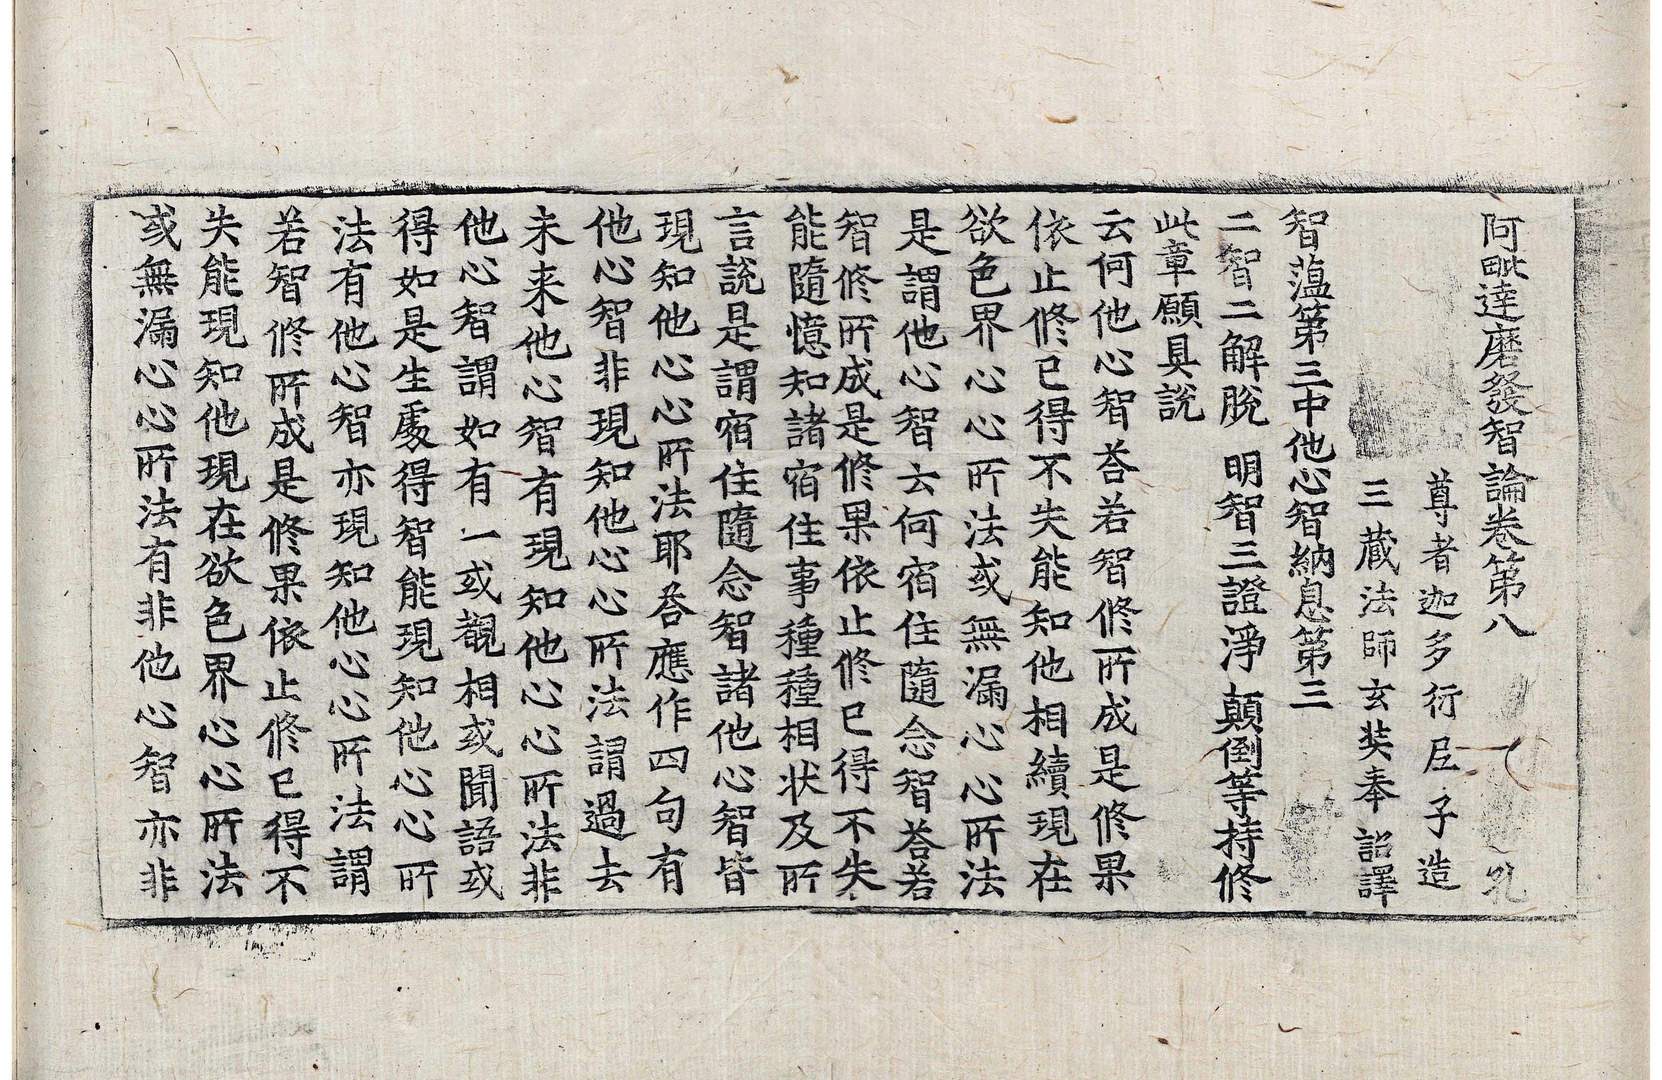 阿毗達磨發智論卷第八
尊者迦多衍尼子造
三藏法師玄奘奉詔譯
智薀第三中他心智納息第三
二智二解脫 明智三證淨 顛倒等持修
此章願具說
云何他心智荅若智修所成是修果
依止修已得不失能知他相續現在
欲色界心心所法或無漏心心所法
是謂他心智云何宿住隨念智荅若
智修所成是修果依止修已得不失
能隨憶知諸宿住事種種相狀及所
言說是謂宿住隨念智諸他心智皆
現知他心心所法耶荅應作四句有
他心智非現知他心心所法謂過去
未来他心智有現知他心心所法非
他心智謂如有一或觀相或聞語或
得如是生處得智能現知他心心所
法有他心智亦現知他心心所法謂
若智修所成是修果依止修已得不
失能現知他現在欲色界心心所法
或無漏心心所法有非他心智亦非